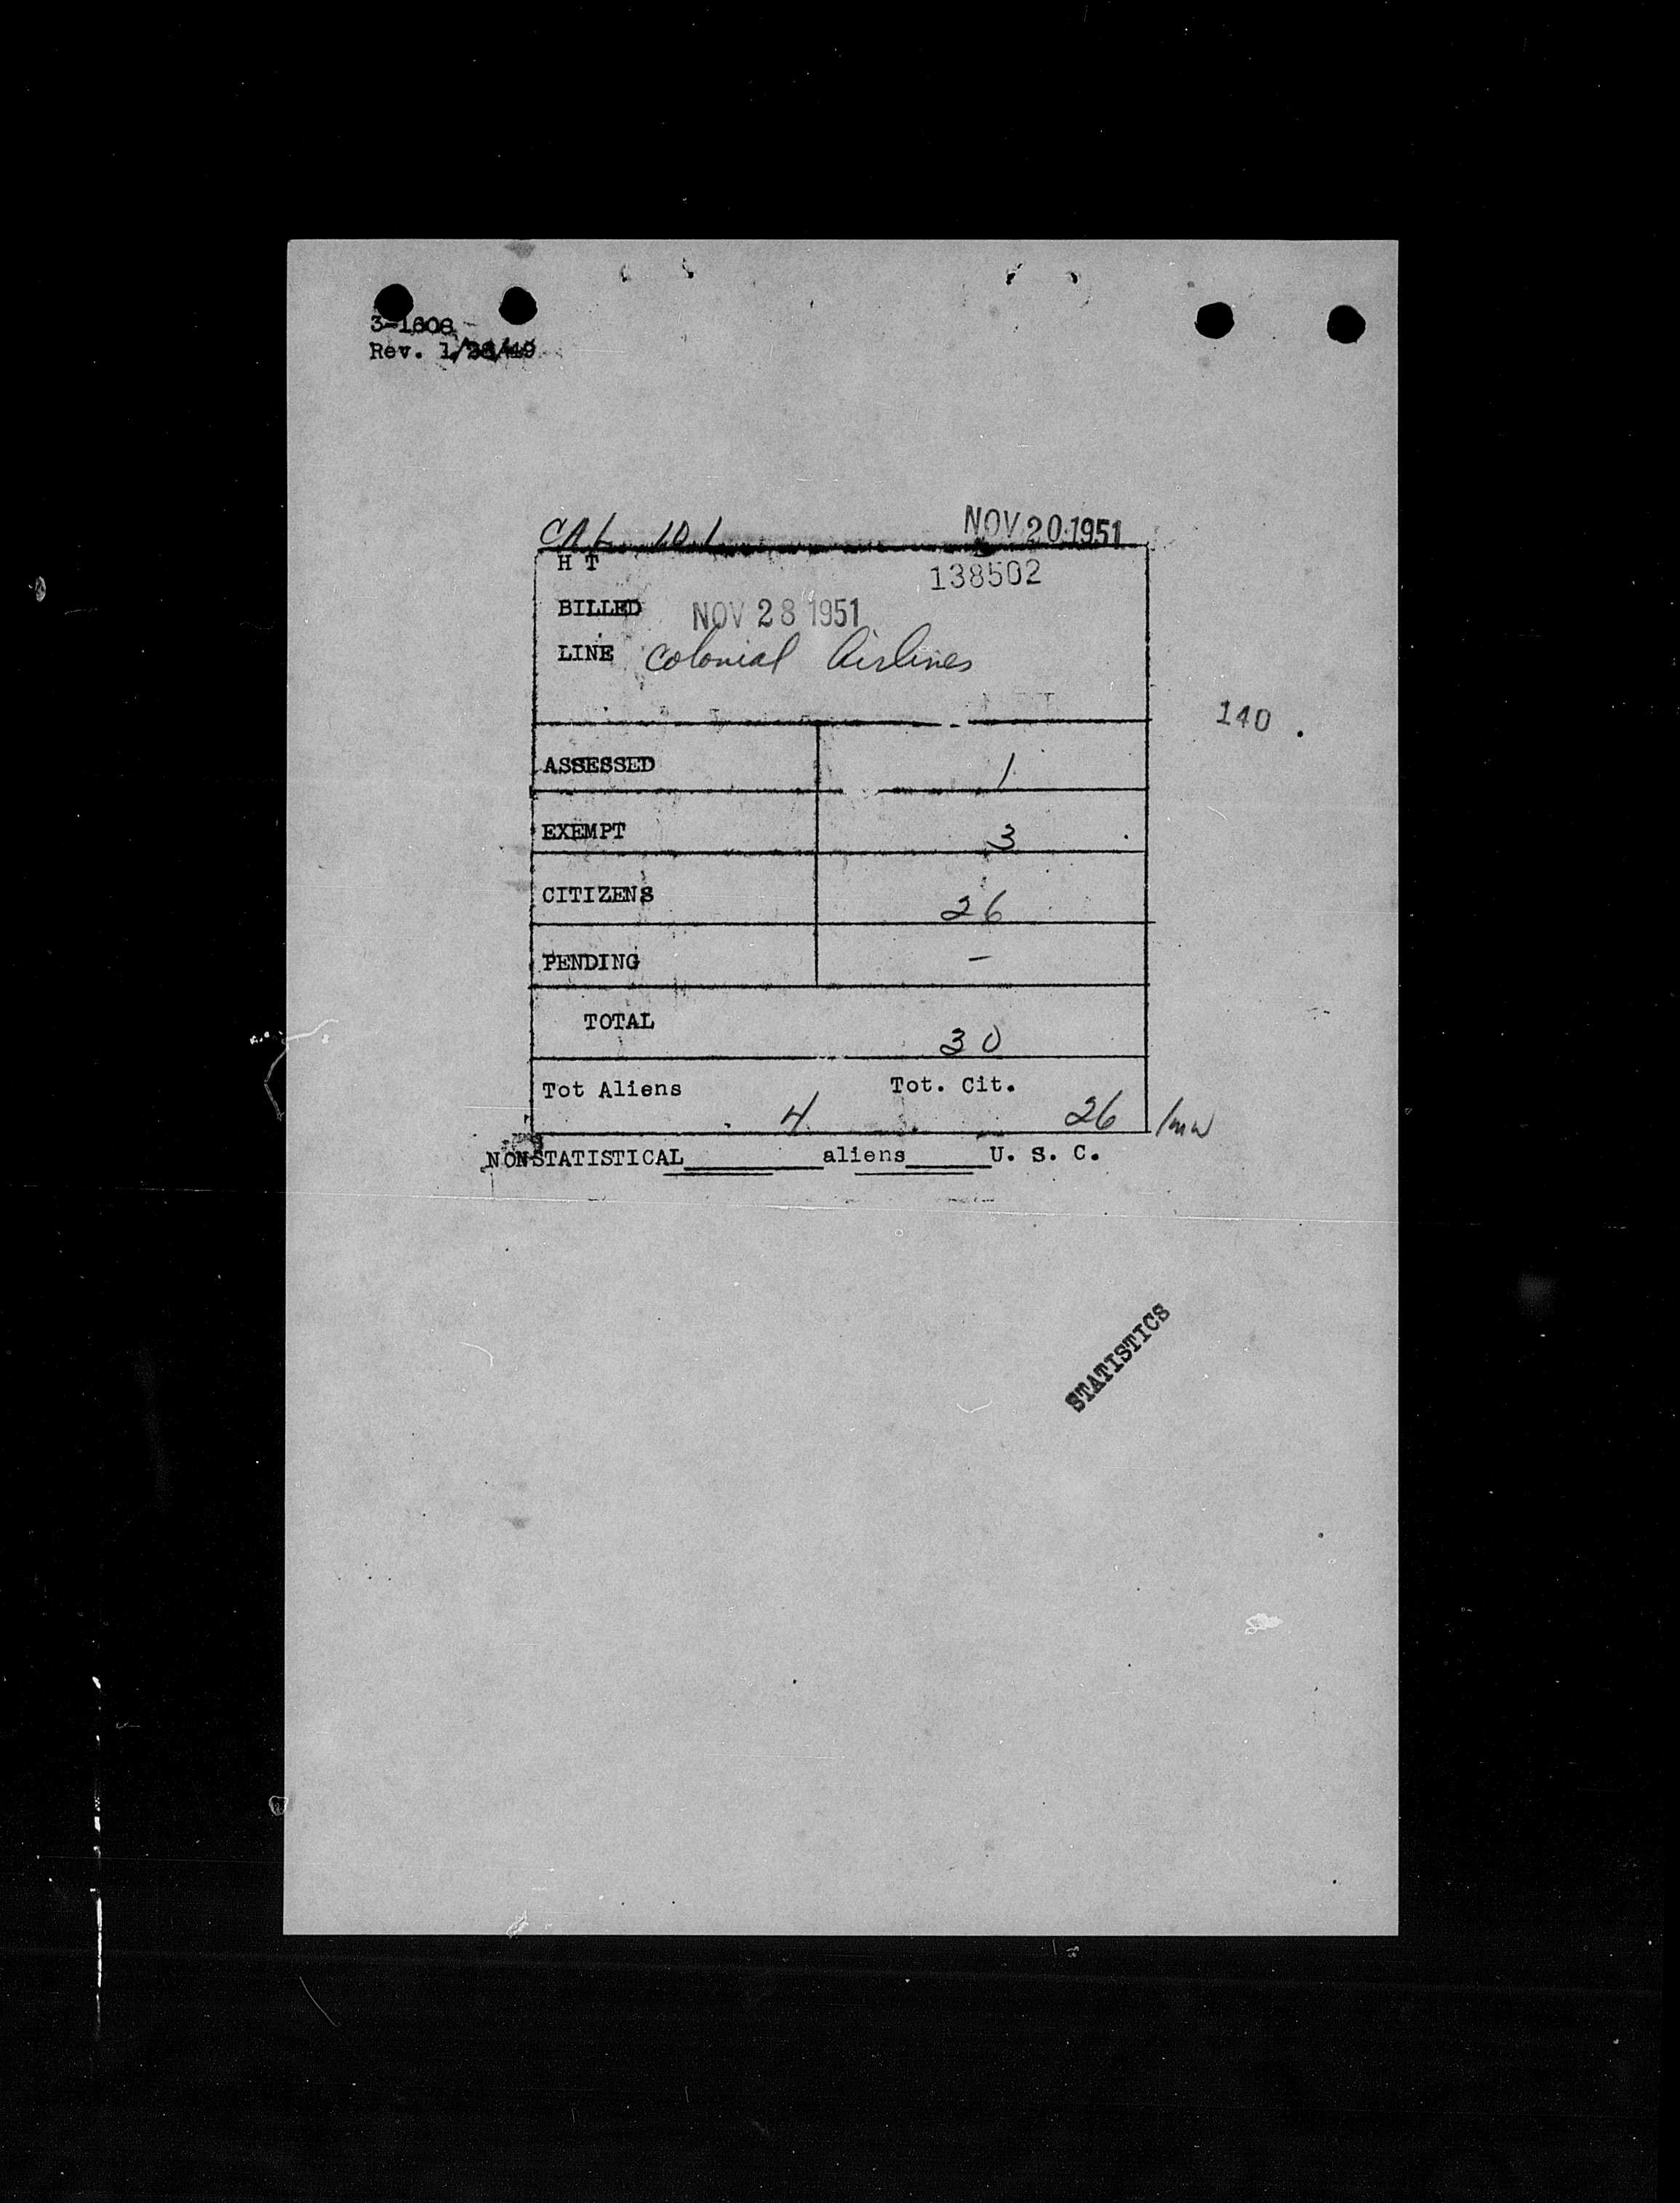 3-1608
Rev. 1/28/49
CAL 101 NOV 20 1951
H T
138502
BILLED NOV 28 1951
LINE Colonial Airlines
140
ASSESSED 1
EXEMPT 3
CITIZENS 26
PENDING –
TOTAL 30
Tot Aliens 4 Tot. Cit. 26 /mw
NONSTATISTICAL________aliens_____U. S. C.
STATISTICS